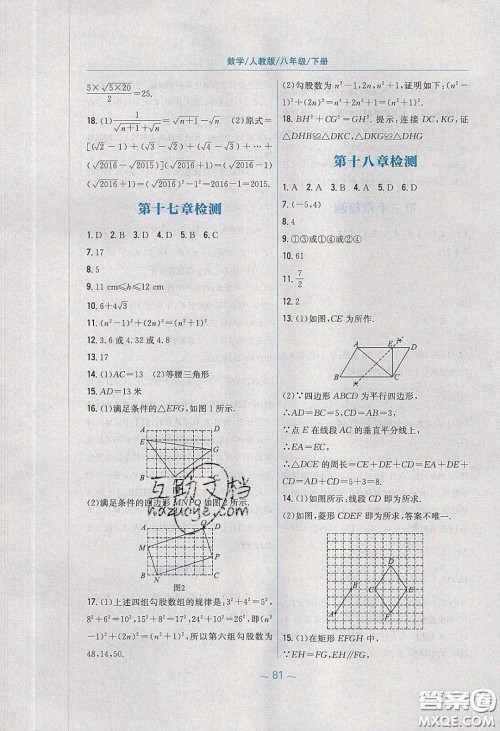 数学/人教版/八年级/下册
5×√(5×20)/2=25.
18. (1) 1/(√(n+1)+√n)=√(n+1)-√n (2)原式=
[(√2-1)+(√3-√2)+(√4-√3)+…+
(√2016-√2015)](√2016+1)=(√2016-1)
(√2016+1)=(√2016)²-1²=2016-1=2015.
第十七章检测
1. D 2. B 3. D 4. D 5. B 6. C
7. 17
8. 5
9. 11 cm≤h≤12 cm
10. 6+4√3
11. (n²-1)²+(2n)²=(n²+1)²
12. 3.6 或 4.32 或 4.8
13. 17
14. (1)AC=13 (2)等腰三角形
15. AD=13 米
16. (1)满足条件的△EFG,如图 1 所示.
A
D
E
G
B
C
(2)满足条件的四边形 MNPQ 如图 2 所示.
A
Q
D
M
P
B
N
C
图2
17. (1)上述四组勾股数组的规律是,3²+4²=5²,
8²+6²=10²,15²+8²=17²,24²+10²=26²,即(n²
-1)²+(2n)²=(n²+1)²,所以第六组勾股数为
48,14,50.
(2)勾股数为 n²-1,2n,n²+1,证明如下:(n²-
1)²+(2n)²=n⁴+2n²+1=(n²+1)².
18. BH²+CG²=GH². 提示:连接 DC,KG,证
△DHB≌△DKC,△DKG≌△DHG
第十八章检测
1. A 2. B 3. D 4. A 5. D 6. D
7. (-5,4)
8. 4
9. ①③或①④或②④
10. 61
11. 7/2
12. 2
13. (1)如图,CE 为所作.
A
E
D
B
C
(2)∵四边形 ABCD 为平行四边形,
∴AD=BC=5,CD=AB=3,
∵点 E 在线段 AC 的垂直平分线上,
∴EA=EC,
∴△DCE 的周长=CE+DE+CD=EA+DE+
CD=AD+CD=5+3=8.
14. (1)如图所示;线段 CD 即为所求.
(2)如图,菱形 CDEF 即为所求,答案不唯一.
B
D
C
E
A
F
15. (1)在矩形 EFGH 中,
∵EH=FG,EH∥FG,
~ 81 ~
互助文档
hazuoye.com
答案圈
MXQE.COM